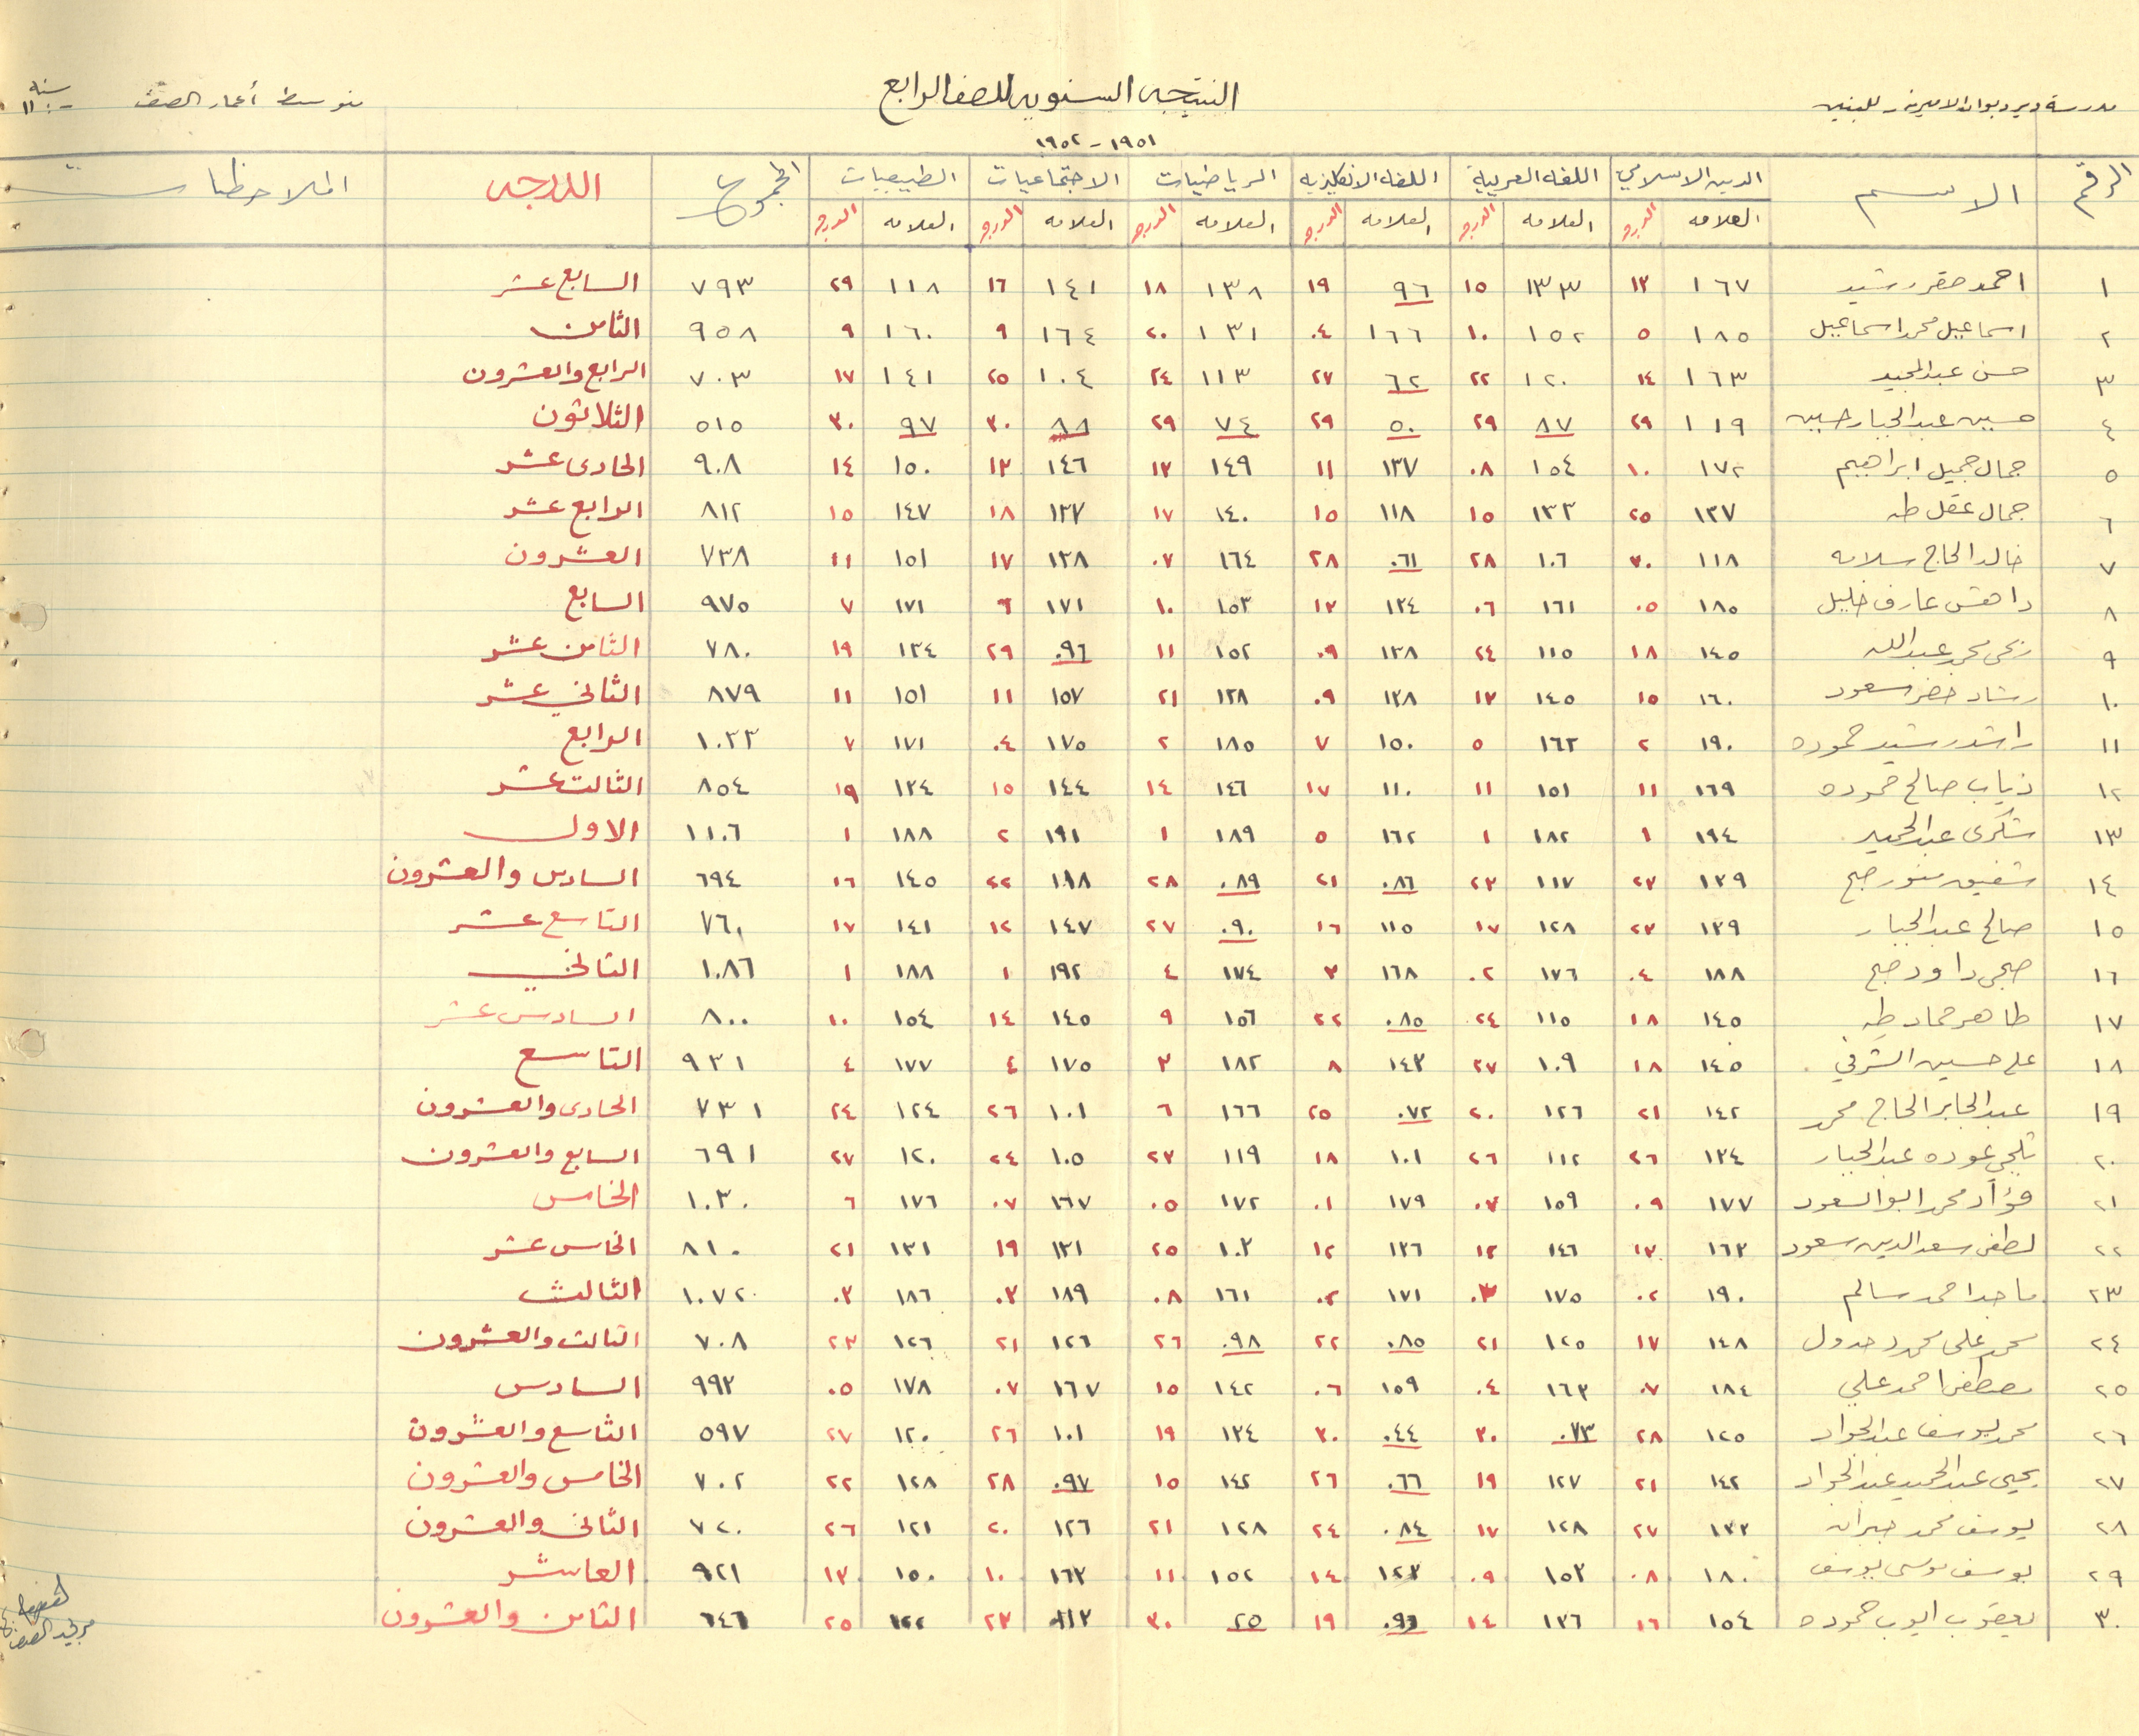 مدرسة دير ديوان الاميرية للبنين
النتيجه السنويه للصف الرابع
متوسط أعمار الصف سنة ١١
١٩٥١ - ١٩٥٢
الرقم الاسم الدين الاسلامي اللغه العربية اللغه الانكليزيه الرياضيات الاجتماعيات الطبيعيات المجموع الدرجه الملاحظات
العلامه الدرجه العلامه الدرجه العلامه الدرجه العلامه الدرجه العلامه الدرجه العلامه الدرجه
١ احمد صقر رشيد ١٦٧ ١٢ ١٣٣ ١٥ ٩٦ ١٩ ١٣٨ ١٨ ١٤١ ١٦ ١١٨ ٢٩ ٧٩٣ السابع عشر
٢ اسماعيل محمد اسماعيل ١٨٥ ٥ ١٥٢ ١٠ ١٦٦ ٠٤ ١٣١ ٢٠ ١٦٤ ٩ ١٦٠ ٩ ٩٥٨ الثامن
٣ حسن عبد المجيد ١٦٣ ١٤ ١٢٠ ٢٢ ٦٢ ٢٧ ١١٣ ٢٤ ١٠٤ ٢٥ ١٤١ ١٧ ٧٠٣ الرابع والعشرون
٤ حسين عبد الجبار حسين ١١٩ ٢٩ ٨٧ ٢٩ ٥٠ ٢٩ ٧٤ ٢٩ ٨٨ ٣٠ ٩٧ ٣٠ ٥١٥ الثلاثون
٥ جمال جميل ابراهيم ١٧٢ ١٠ ١٥٤ ٠٨ ١٣٧ ١١ ١٤٩ ١٣ ١٤٦ ١٣ ١٥٠ ١٤ ٩٠٨ الحادى عشر
٦ جمال عقل طه ١٣٧ ٢٥ ١٣٣ ١٥ ١١٨ ١٥ ١٤٠ ١٧ ١٣٧ ١٨ ١٤٧ ١٥ ٨١٢ الرابع عشر
٧ خالد الحاج سلامه ١١٨ ٣٠ ١٠٦ ٢٨ ٠٦١ ٢٨ ١٦٤ ٠٧ ١٣٨ ١٧ ١٥١ ١١ ٧٣٨ العشرون
٨ داهش عارف خليل ١٨٥ ٠٥ ١٦١ ٠٦ ١٣٤ ١٣ ١٥٣ ١٠ ١٧١ ٦ ١٧١ ٧ ٩٧٥ السابع
٩ محمد عبد الله ١٤٥ ١٨ ١١٥ ٢٤ ١٣٨ ٠٩ ١٥٢ ١١ ٠٩٦ ٢٩ ١٣٤ ١٩ ٧٨٠ الثامن عشر
١٠ رشاد خضر سعود ١٦٠ ١٥ ١٤٥ ١٣ ١٣٨ ٠٩ ١٢٨ ٢١ ١٥٧ ١١ ١٥١ ١١ ٨٧٩ الثاني عشر
١١ راشد رشيد حموده ١٩٠ ٢ ١٦٢ ٥ ١٥٠ ٧ ١٨٥ ٢ ١٧٥ ٠٤ ١٧١ ٧ ١٠٣٣ الرابع
١٢ ذياب صالح حموده ١٦٩ ١١ ١٥١ ١١ ١١٠ ١٧ ١٤٦ ١٤ ١٤٤ ١٥ ١٣٤ ١٩ ٨٥٤ الثالث عشر
١٣ شكرى عبد الحميد ١٩٤ ١ ١٨٢ ١ ١٦٢ ٥ ١٨٩ ١ ١٩١ ٢ ١٨٨ ١ ١١٠٦ الاول
١٤ شفيق منور صبح ١٣٩ ٢٣ ١١٧ ٢٣ ٠٨٦ ٢١ ٠٨٩ ٢٨ ١١٨ ٢٢ ١٤٥ ١٦ ٦٩٤ السادس والعشرون
١٥ صالح عبد الجبار ١٣٩ ٢٣ ١٢٨ ١٧ ١١٥ ١٦ ٠٩٠ ٢٧ ١٤٧ ١٢ ١٤١ ١٧ ٧٦٠ التاسع عشر
١٦ صبحى داود صبح ١٨٨ ٠٤ ١٧٦ ٠٢ ١٦٨ ٣ ١٧٤ ٤ ١٩٢ ١ ١٨٨ ١ ١٠٨٦ الثاني
١٧ طاهر حماد طه ١٤٥ ١٨ ١١٥ ٢٤ ٠٨٥ ٢٢ ١٥٦ ٩ ١٤٥ ١٤ ١٥٤ ١٠ ٨٠٠ السادس عشر
١٨ علي حسين الشرفي ١٤٥ ١٨ ١٠٩ ٢٧ ١٤٣ ٨ ١٨٢ ٣ ١٧٥ ٤ ١٧٧ ٤ ٩٣١ التاسع
١٩ عبد الجابر الحاج محمد ١٤٢ ٢١ ١٢٦ ٢٠ ٠٧٢ ٢٥ ١٦٦ ٦ ١٠١ ٢٦ ١٢٤ ٢٤ ٧٣١ الحادى والعشرون
٢٠ عوده عبد الجبار ١٣٤ ٢٦ ١١٢ ٢٦ ١٠١ ١٨ ١١٩ ٢٣ ١٠٥ ٢٤ ١٢٠ ٢٧ ٦٩١ السابع والعشرون
٢١ فؤاد محمد ابو السعود ١٧٧ ٠٩ ١٥٩ ٠٧ ١٧٩ ٠١ ١٧٢ ٠٥ ١٦٧ ٠٧ ١٧٦ ٦ ١٠٣٠ الخامس
٢٢ لطفى سعد الدين سعود ١٦٣ ١٣ ١٤٦ ١٢ ١٣٦ ١٢ ١٠٣ ٢٥ ١٣١ ١٩ ١٣١ ٢١ ٨١٠ الخامس عشر
٢٣ ماجد احمد سالم ١٩٠ ٠٢ ١٧٥ ٠٣ ١٧١ ٠٢ ١٦١ ٠٨ ١٨٩ ٠٣ ١٨٦ ٠٣ ١٠٧٢ الثالث
٢٤ محمد على محمد جدول ١٤٨ ١٧ ١٢٥ ٢١ ٠٨٥ ٢٢ ٠٩٨ ٢٦ ١٢٦ ٢١ ١٢٦ ٢٣ ٧٠٨ الثالث والعشرون
٢٥ مصطفى احمد علي ١٨٤ ٠٧ ١٦٣ ٠٤ ١٥٩ ٠٦ ١٤٢ ١٥ ١٦٧ ٠٧ ١٧٨ ٠٥ ٩٩٣ السادس
٢٦ محمد يوسف عبد الجواد ١٢٥ ٢٨ ٠٧٣ ٣٠ ٠٤٤ ٣٠ ١٣٤ ١٩ ١٠١ ٢٦ ١٢٠ ٢٧ ٥٩٧ التاسع والعشرون
٢٧ يحيى عبد الحميد عبد الجواد ١٤٢ ٢١ ١٢٧ ١٩ ٠٦٦ ٢٦ ١٤٢ ١٥ ٠٩٧ ٢٨ ١٢٨ ٢٢ ٧٠٢ الخامس والعشرون
٢٨ يوسف محمد جبران ١٣٣ ٢٧ ١٢٨ ١٧ ٠٨٤ ٢٤ ١٢٨ ٢١ ١٢٦ ٢٠ ١٢١ ٢٦ ٧٢٠ الثانى والعشرون
٢٩ يوسف موسى يوسف ١٨٠ ٠٨ ١٥٣ ٠٩ ١٢٣ ١٤ ١٥٢ ١١ ١٦٣ ١٠ ١٥٠ ١٣ ٩٢١ العاشر
٣٠ يعقوب ايوب حموده ١٥٤ ١٦ ١٣٦ ١٤ ٠٩٦ ١٩ ٢٥ ٣٠ ١١٣ ٢٣ ١٢٢ ٢٥ ٦٤٦ الثامن والعشرون
مربي الصف